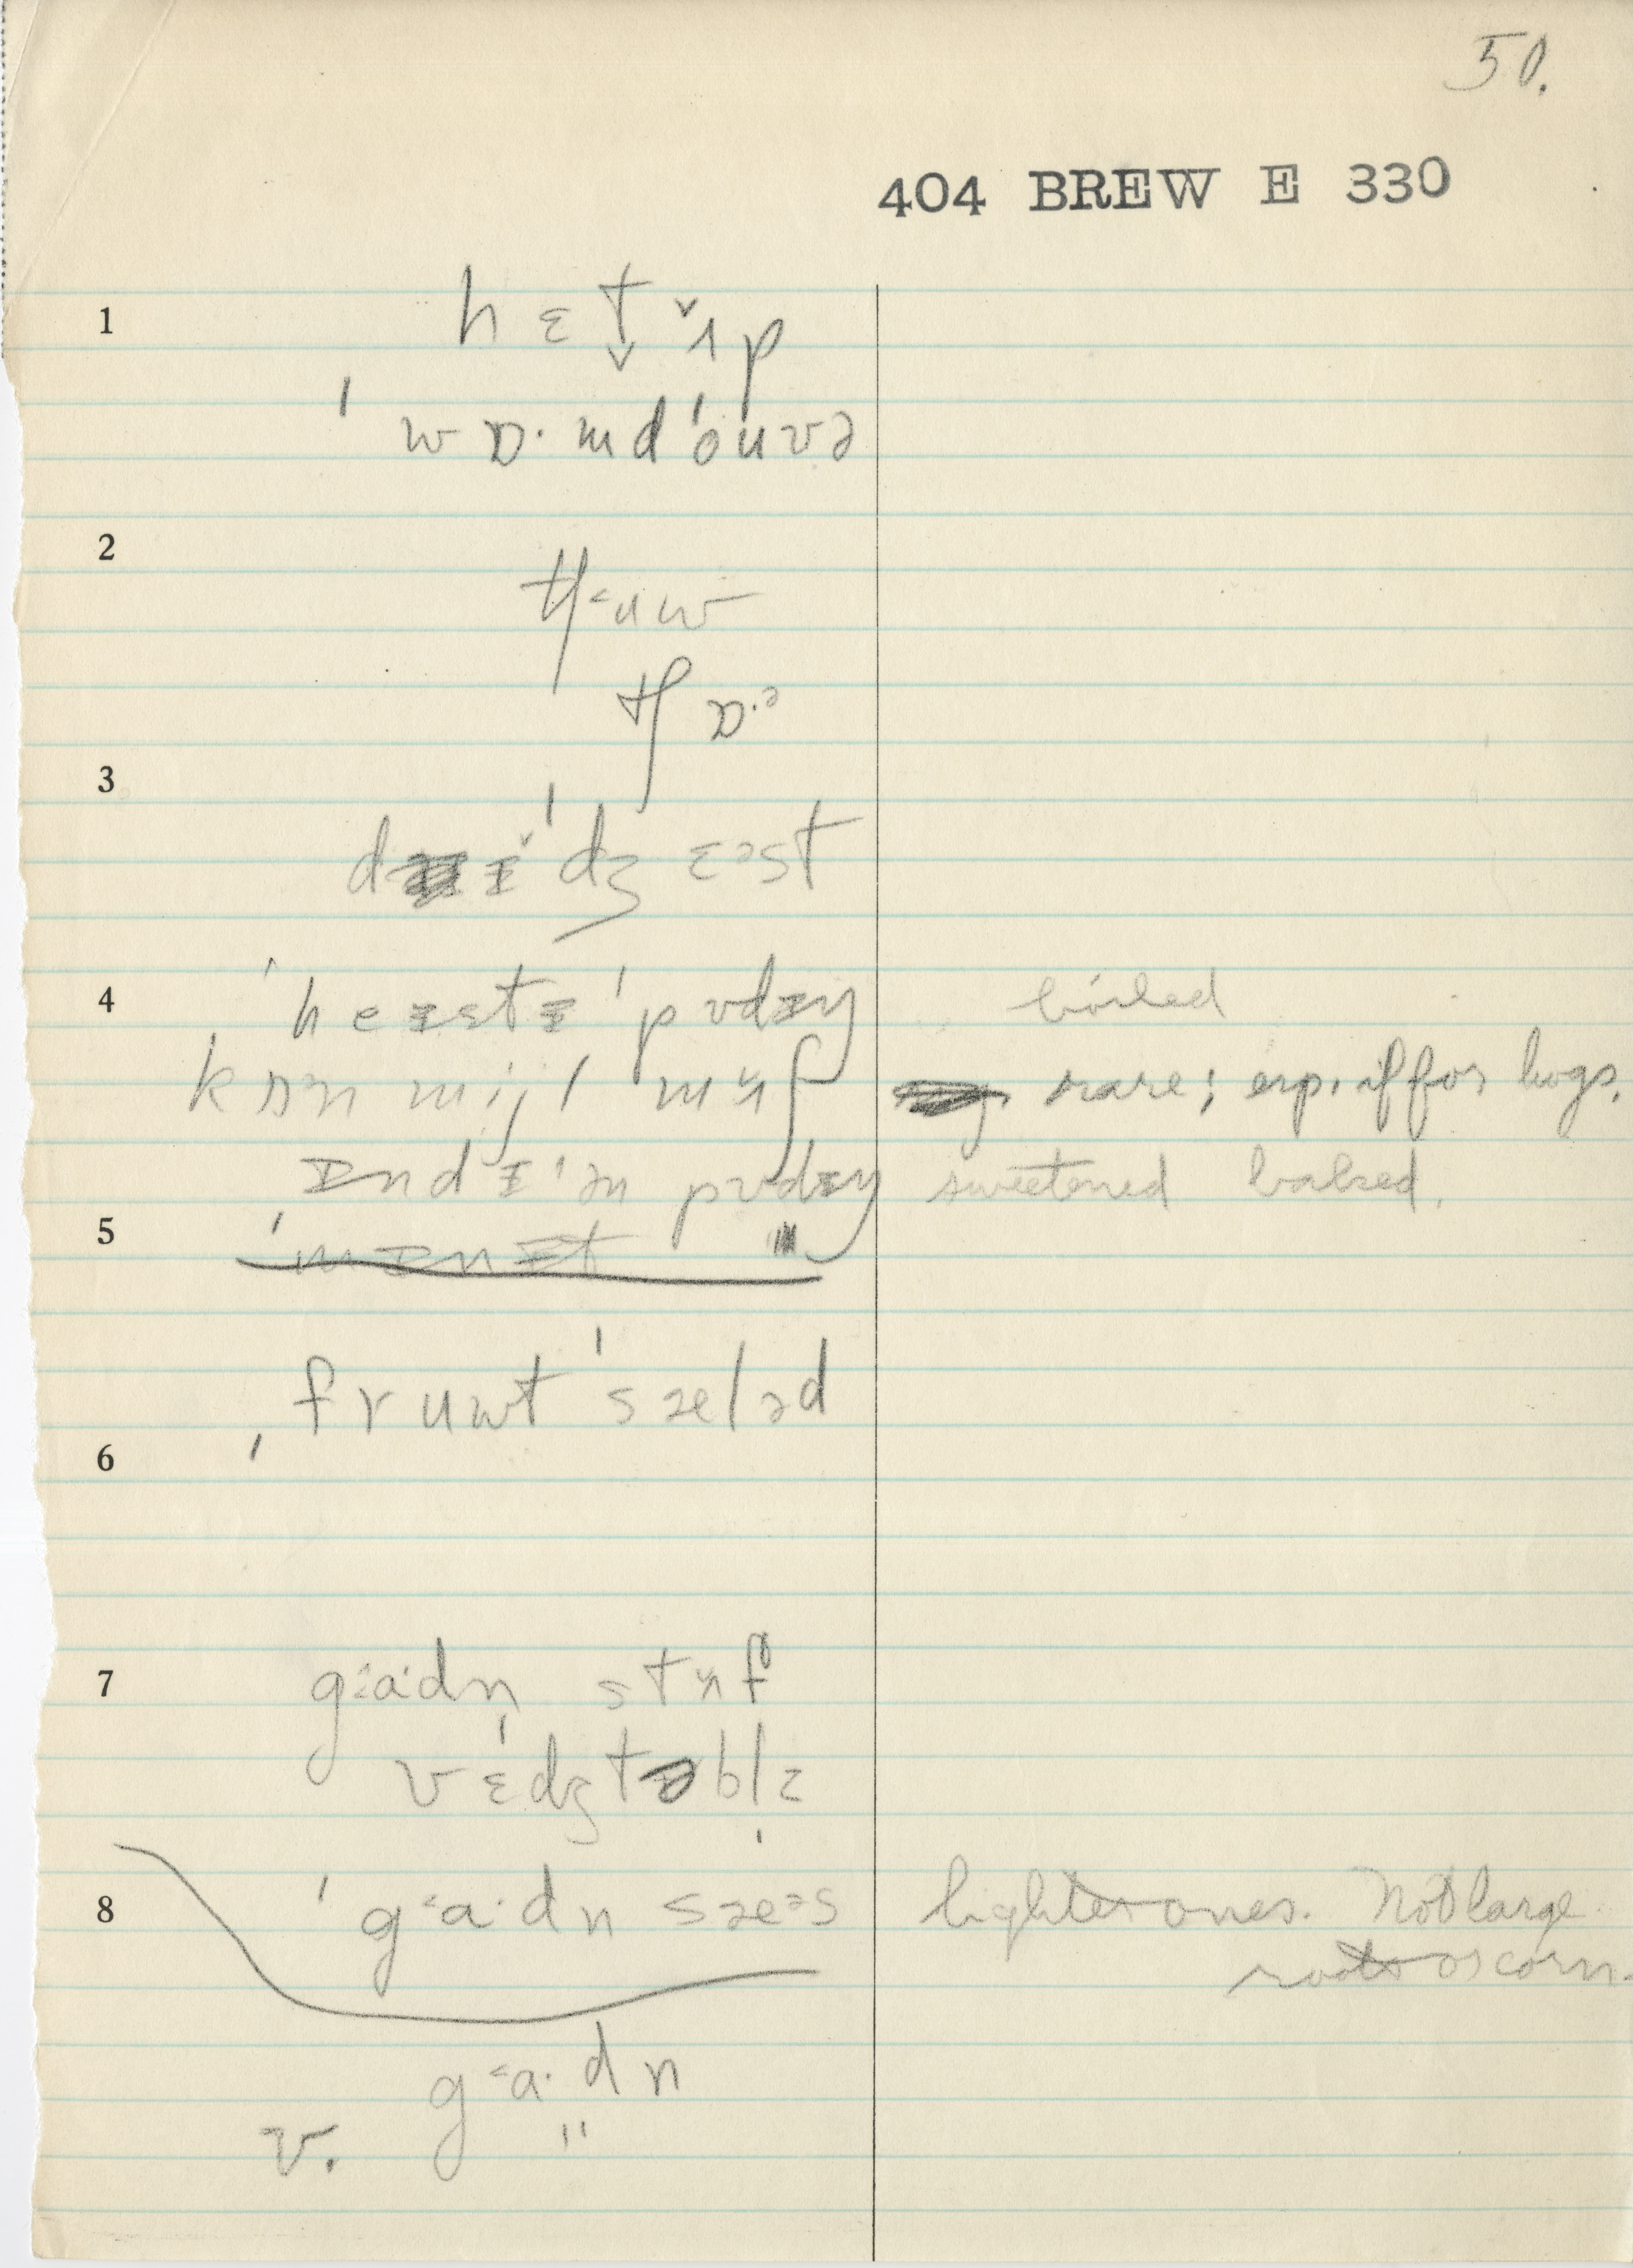 50.
404 BREW E 330
1 hɛt ʌp
ˈwɒ·mdˈouvə
2 tʃuw
tʃɒ·ə
3 dɪˈdʒɛəst
4 ˈheɪstɪ ˈpʊdɪŋ boiled
kɒən mijl mʌʃ rare; exp. if for hogs.
ɪndɪˈən pʊdɪŋ sweetened baked.
5
fruwtˈsæləd
6
7 ga·dn stʌf
vɛdʒtəblz
8 ˈga·dn sæəs lighter ones. Not large
roots or corn.
ga·dn
v. "